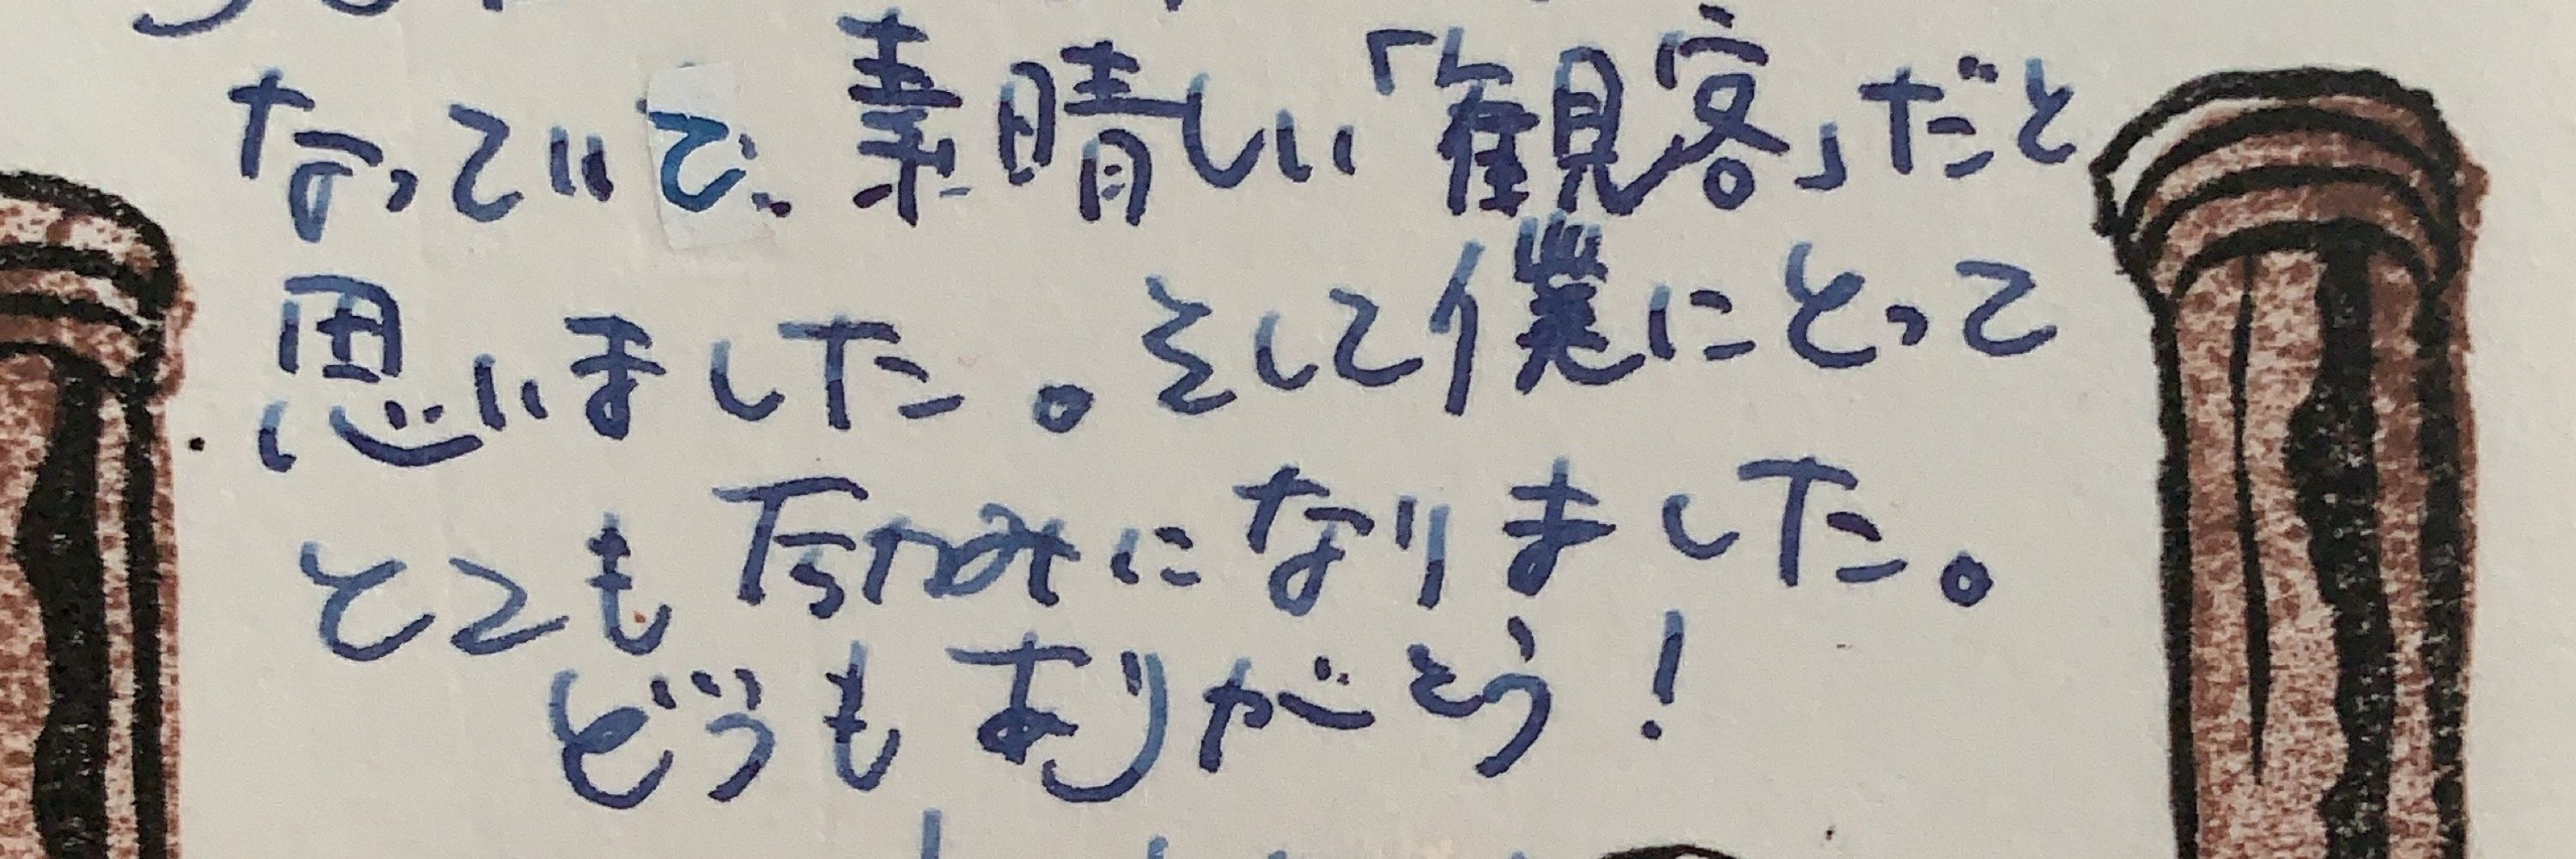 なっていて、素晴しい「観客」だと
思いました。そして僕にとって
とても励みになりました。
どうもありがとう!